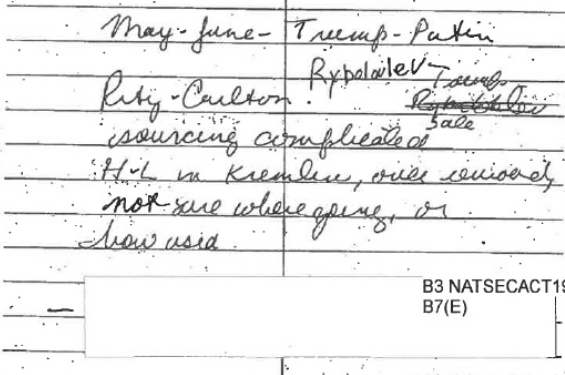 May-June- Trump-Putin
Rybolovlev-Trump
Ritz-Carlton.
Sale
sourcing complicated
H-L in Kremlin, once removed,
not sure where going, or
how used
B3 NATSECACT19
B7(E)